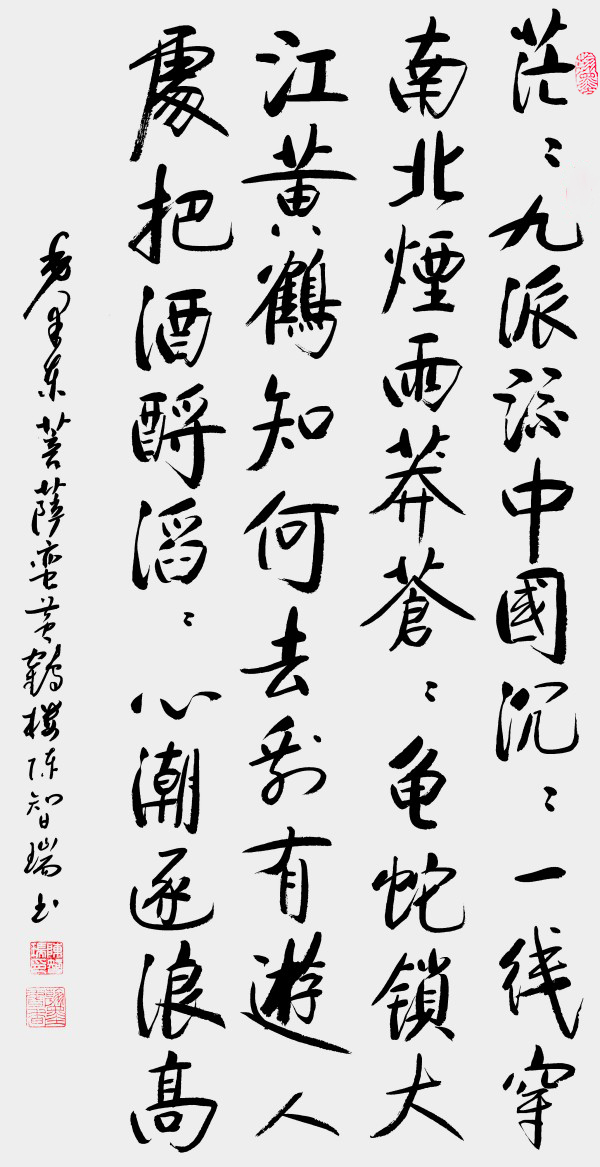 茫〻九派流中國沉〻一线穿
南北煙雨莽蒼〻龟蛇锁大
江黄鶴知何去剩有遊人
處把酒酹滔〻心潮逐浪高
毛泽东菩萨蛮黄鹤楼陈智瑞书